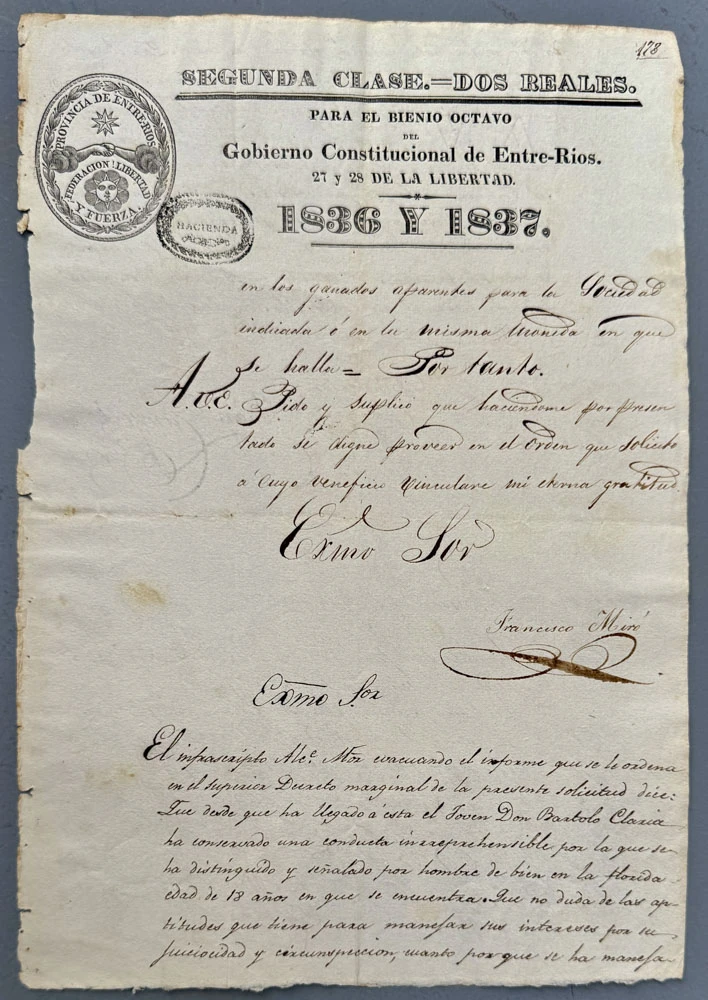 178
SEGUNDA CLASE.=DOS REALES.
PROVINCIA DE ENTRE-RIOS
FEDERACION! LIBERTAD
Y FUERZA.
HACIENDA
PARA EL BIENIO OCTAVO
DEL
Gobierno Constitucional de Entre-Rios.
27 y 28 DE LA LIBERTAD.
1836 Y 1837.
en los ganados aparentes para la Sociedad
indicada ó en la misma moneda en que
se halla = Por tanto.
A.V.E. Pido y suplico que haciendome por presen
tado se digne proveer en el orden que solicito
á cuyo veneficio vinculare mi eterna gratitud.
Exmo Sor
Francisco Miró
Exmo Sor
El infrascripto Alce. Mor evacuando el informe que se le ordena
en el superior Decreto marginal de la presente solicitud dice:
Que desde que ha llegado á esta el Joven Don Bartolo Claria
ha conservado una conducta inrreprehensible por la que se
ha distinguido y señalado por hombre de bien en la florida
edad de 18 años en que se encuentra. Que no duda de las ap-
titudes que tiene para manejar sus intereses por su
juiciocidad y circunspeccion, cuanto por que se ha maneja-